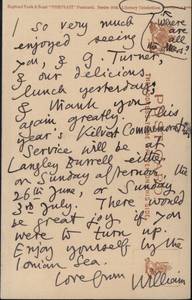 So very much
enjoyed seeing
you, & G. Turner,
& our delicious
lunch yesterday,
& thank you
again greatly. This
year's Kilvert Commemorative
Service will be at
Langley Burrell either
on Sunday afternoon the
26th June, or Sunday
3rd July. There would
be great joy if you
were to turn up.
Enjoy yourself by the
Ionian Sea.
Love from
William
Where
are
all